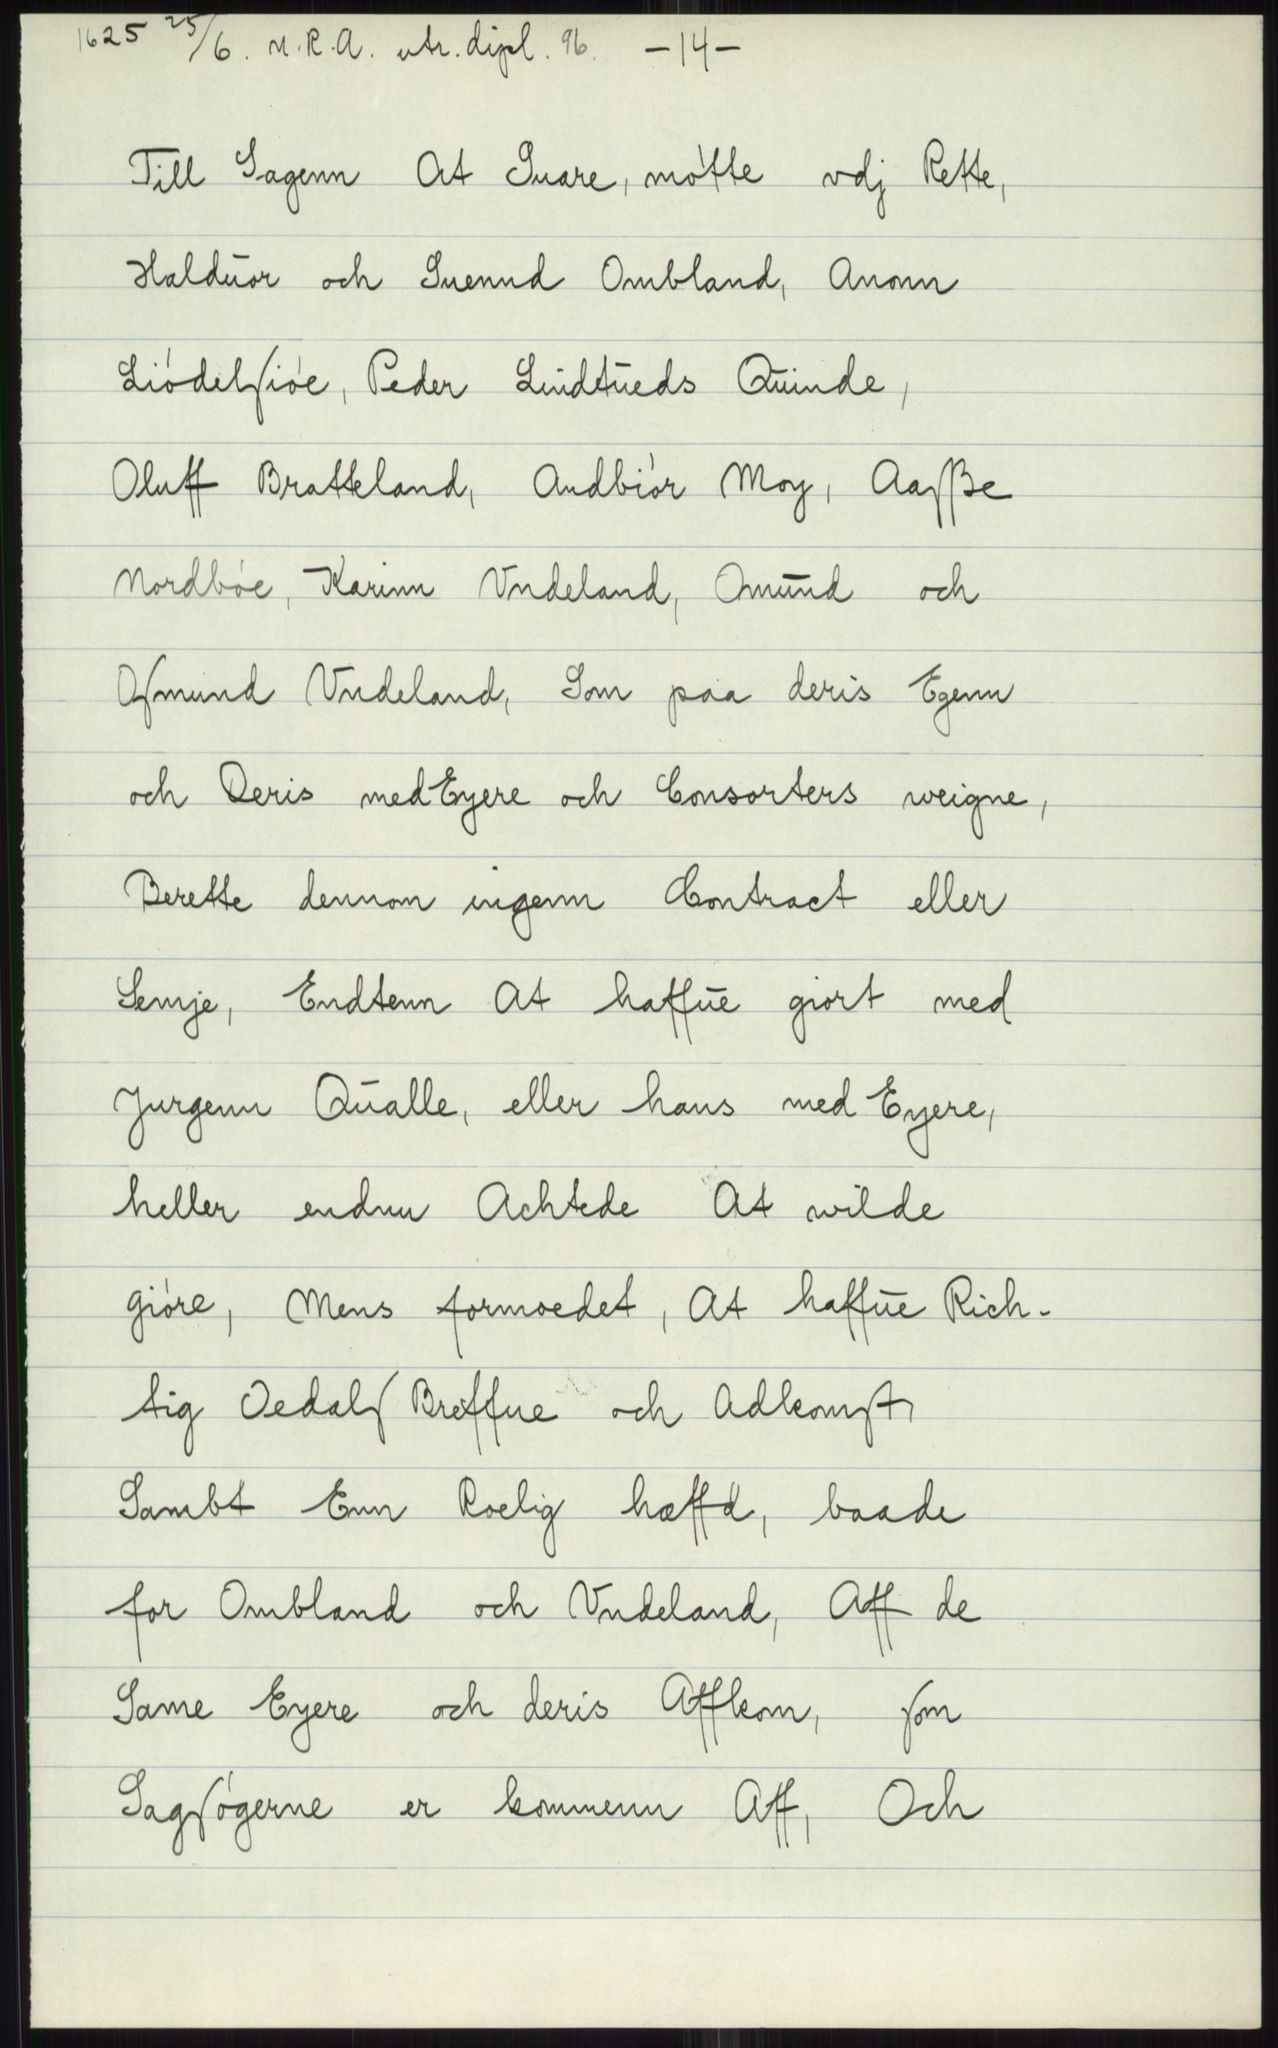 1625 25/6. N.R.A. utr. dipl. 96. -14-
Till Sagenn At Suare, mótte vdj Rette,
Halduor och Suennd Ombland, Anonn
Liódelſióe, Peder Lindtueds Quinde,
Oluff Bratteland, Audbiór Moy, Aaſße
Nordbóe, Karinn Vndeland, Omund och
Oſmund Vndeland, Som paa deris Egenn
och Deris med Eyere och Consorters weigne,
Berette dennom ingenn Contract eller
Semje, Endtenn At haffue giort med
Jurgenn Qualle, eller hans med Eyere,
heller endnu Achtede At wilde
gióre, Mens formoedet, At haffue Rich-
tig Oedalſ Breffue och Adkomſt,
Sambt Enn Roelig hæffd, baade
for Ombland och Vndeland, Aff de
Same Eyere och deris Affkom, ſom
Sagſógerne er kommenn Aff, Och